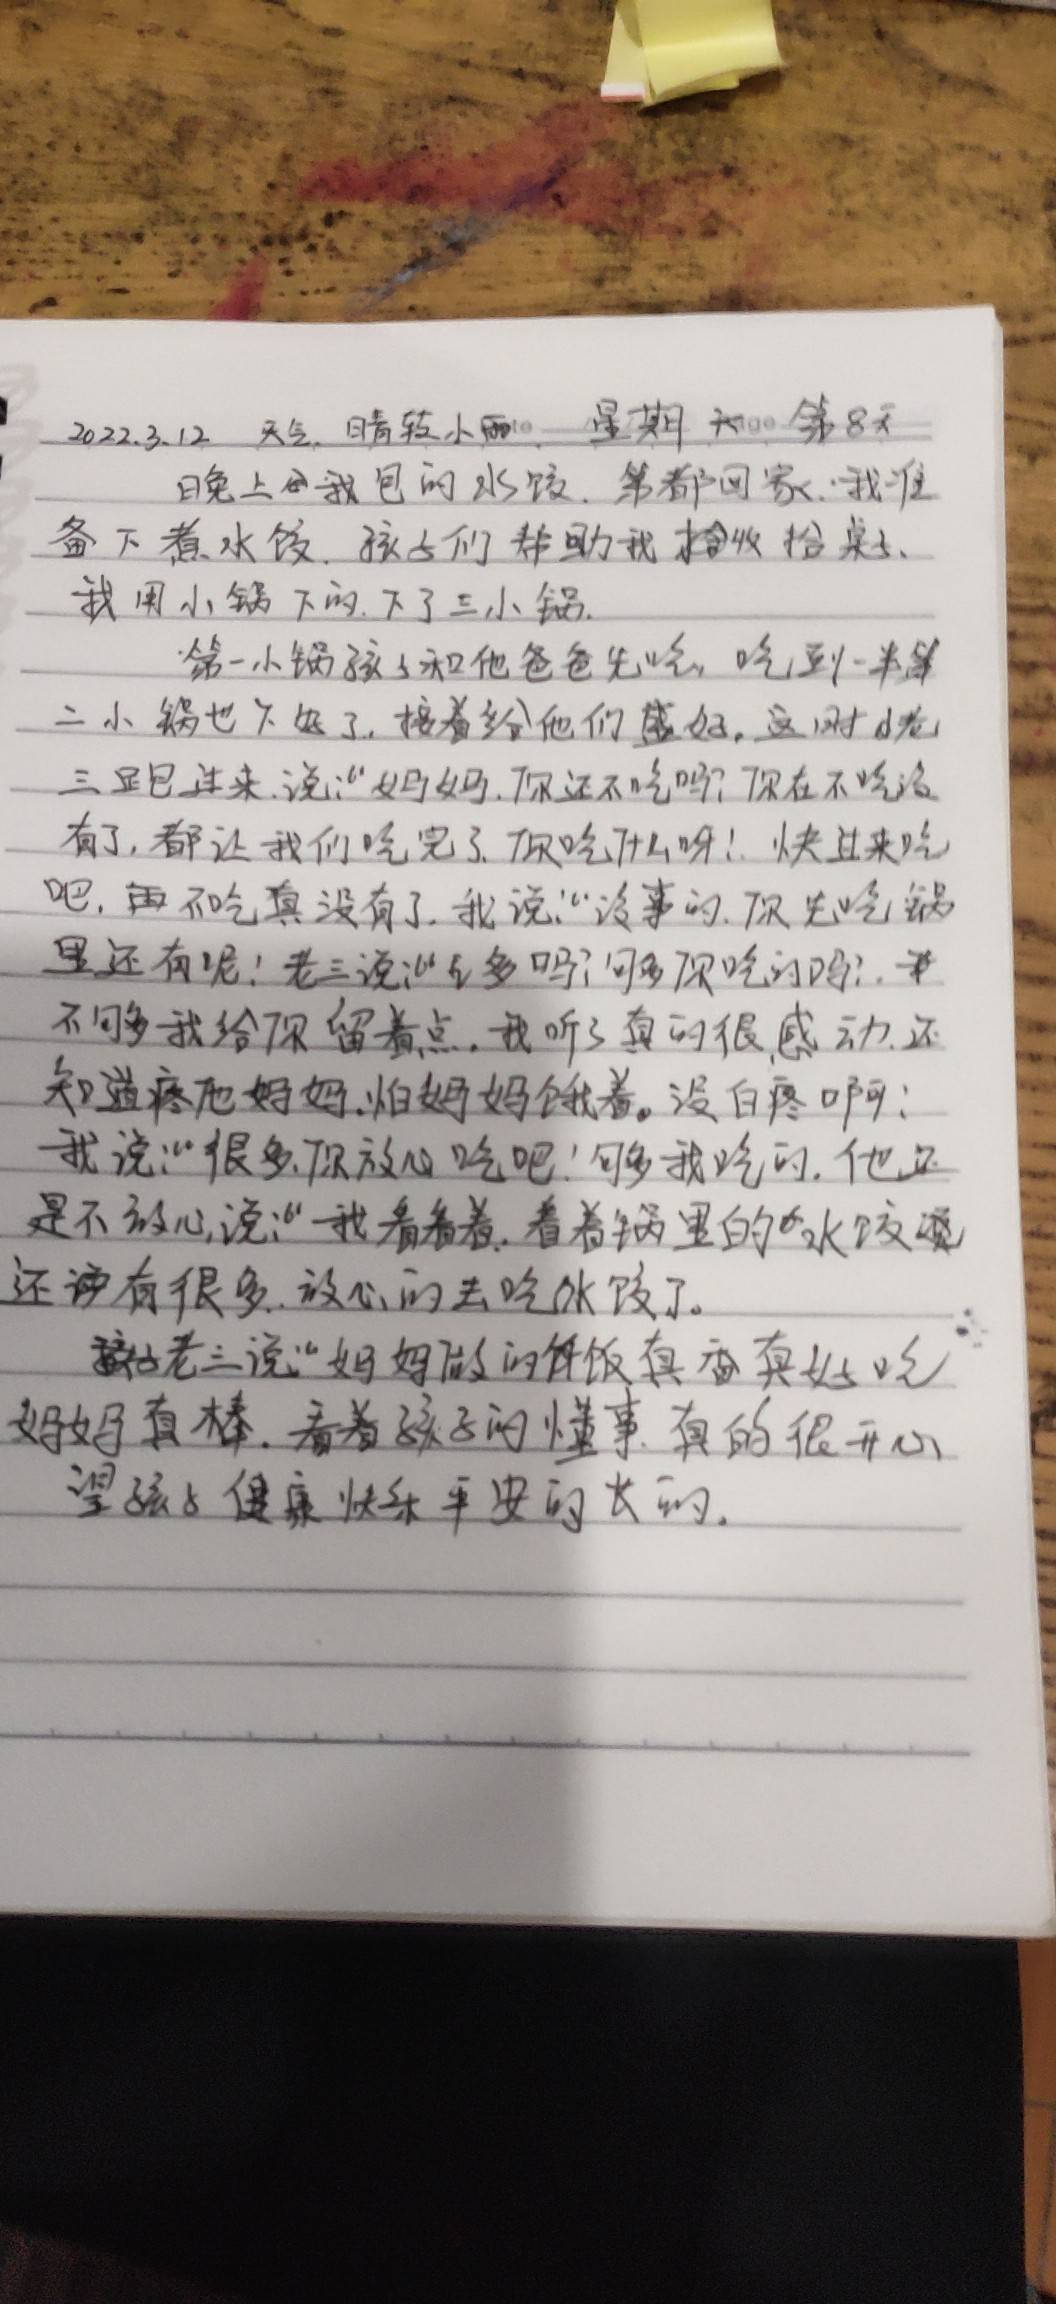 2022.3.12 天气. 晴转小雨 星期天 第8天
晚上 我包的水饺. 等都回家. 我准
备下煮水饺. 孩子们帮助我 收拾桌子、
我用小锅下的. 下了三小锅.
第一小锅孩子和他爸爸先吃, 吃到一半第
二小锅也下好了, 接着给他们盛好。这时 老
三跑过来. 说:“妈妈. 你还不吃吗? 你在不吃没
有了, 都让我们吃完了. 你吃什么呀! 快过来吃
吧, 再不吃真没有了. 我说:“没事的. 你先吃锅
里还有呢! 老三说:“ 多吗? 够你吃的吗?
不够我给你留着点. 我听了真的很感动. 还
知道疼他妈妈. 怕妈妈饿着。没白疼啊!
我说:“很多. 你放心吃吧! 够我吃的. 他还
是不放心, 说:“我看看着. 看着锅里的水饺
还 有很多. 放心的去吃水饺了。
老三说“妈妈做的饭真香真好吃
妈妈真棒. 看着孩子的懂事. 真的很开心
望孩子健康快乐平安的长的.